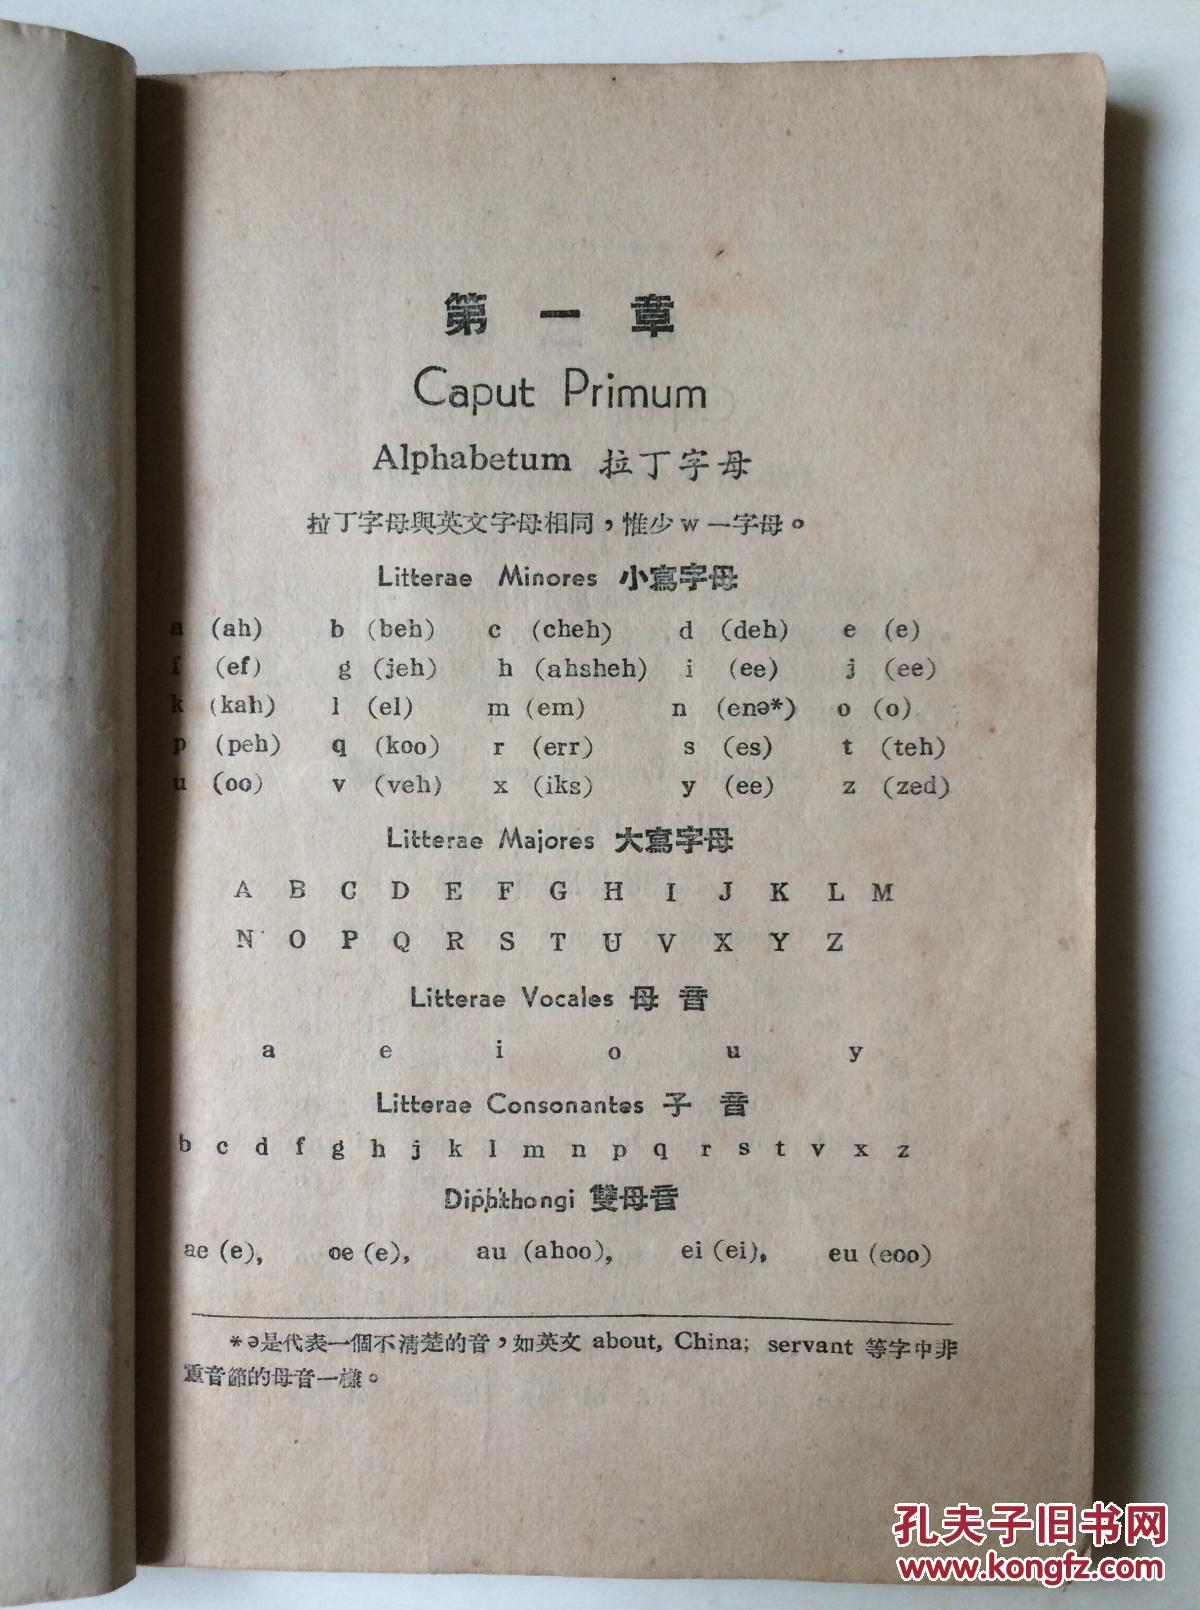 第一章
Caput Primum
Alphabetum 拉丁字母
拉丁字母與英文字母相同，惟少 w 一字母。
Litterae Minores 小寫字母
a (ah) b (beh) c (cheh) d (deh) e (e)
f (ef) g (jeh) h (ahsheh) i (ee) j (ee)
k (kah) l (el) m (em) n (enə*) o (o)
p (peh) q (koo) r (err) s (es) t (teh)
u (oo) v (veh) x (iks) y (ee) z (zed)
Litterae Majores 大寫字母
A B C D E F G H I J K L M
N O P Q R S T U V X Y Z
Litterae Vocales 母音
a e i o u y
Litterae Consonantes 子音
b c d f g h j k l m n p q r s t v x z
Diphthongi 雙母音
ae (e), oe (e), au (ahoo), ei (ei), eu (eoo)
*ə是代表一個不清楚的音，如英文 about, China; servant 等字中非
重音節的母音一樣。
孔夫子旧书网
www.kongfz.com